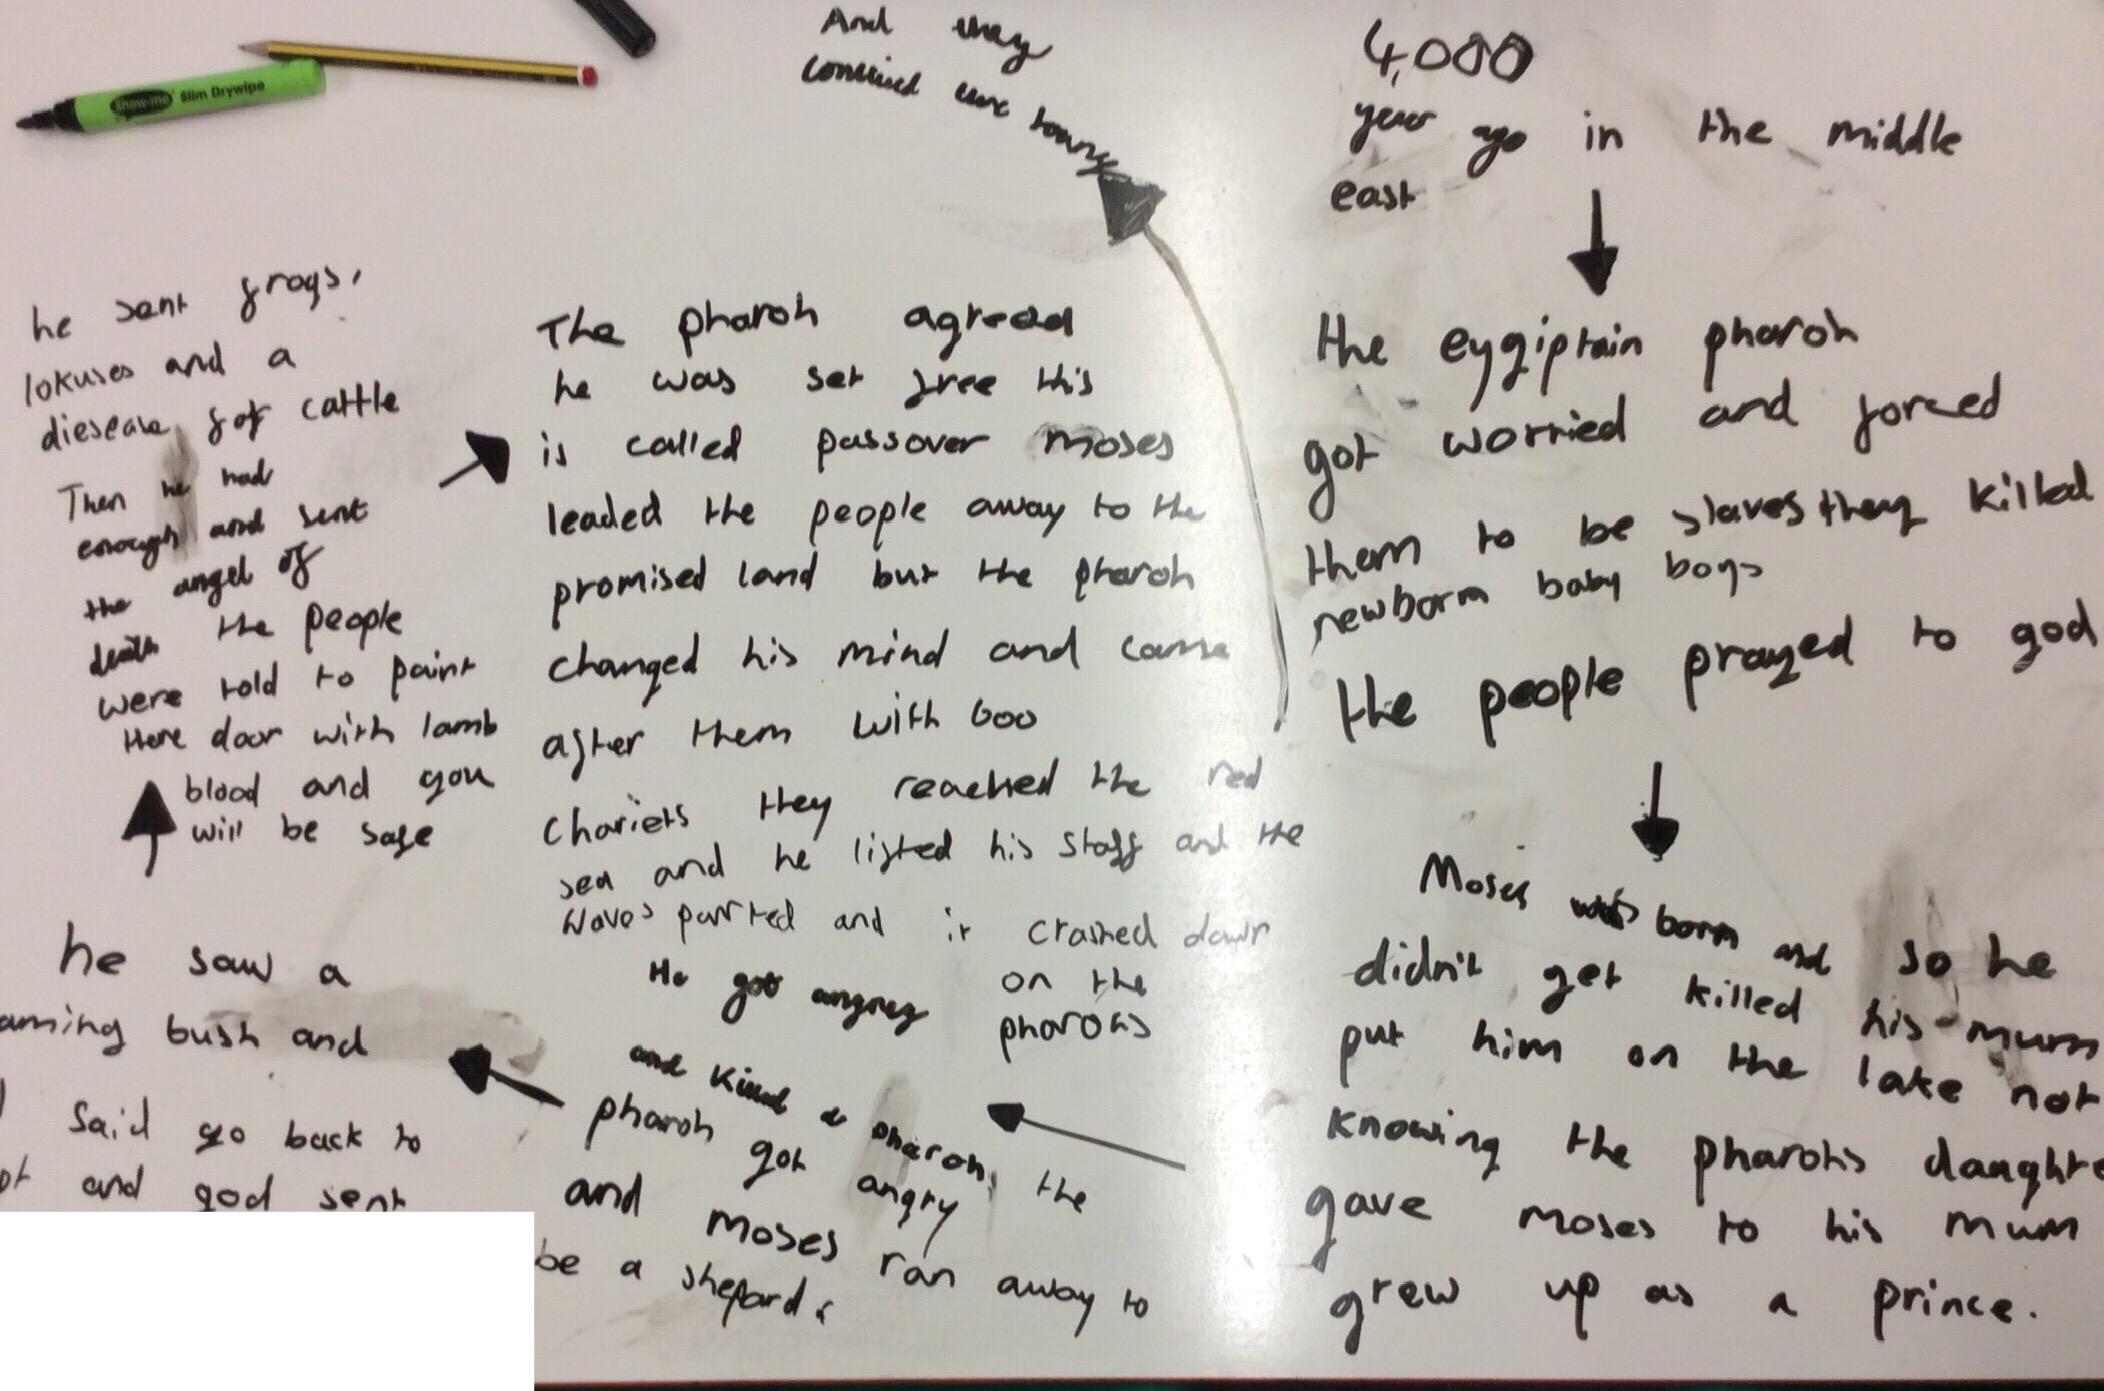 4,000
year ago in the middle
east
the eygiptain pharoh
got worried and forced
them to be slaves they killed
newborn baby boys
the people prayed to god
Moses was born and so he
didn't get killed his mum
put him on the lake not
knowing the pharohs daughte
gave moses to his mum
grew up as a prince.
He got angrey
and killed a pharoh, the
pharoh got angry
and moses ran away to
be a shepard.
he saw a
aming bush and
said go back to
pt and god sent
he sent frogs,
lokuses and a
diesease for cattle
Then he had
enough and sent
the angel of
death the people
were told to paint
there door with lamb
blood and you
will be safe
The pharoh agreed
he was set free this
is called passover moses
leaded the people away to the
promised land but the pharoh
changed his mind and came
after them with 600
chariets they reached the red
sea and he lifted his staff and the
waves parrted and it crashed down
on the
pharohs
And they
Show-me Slim Drywipe